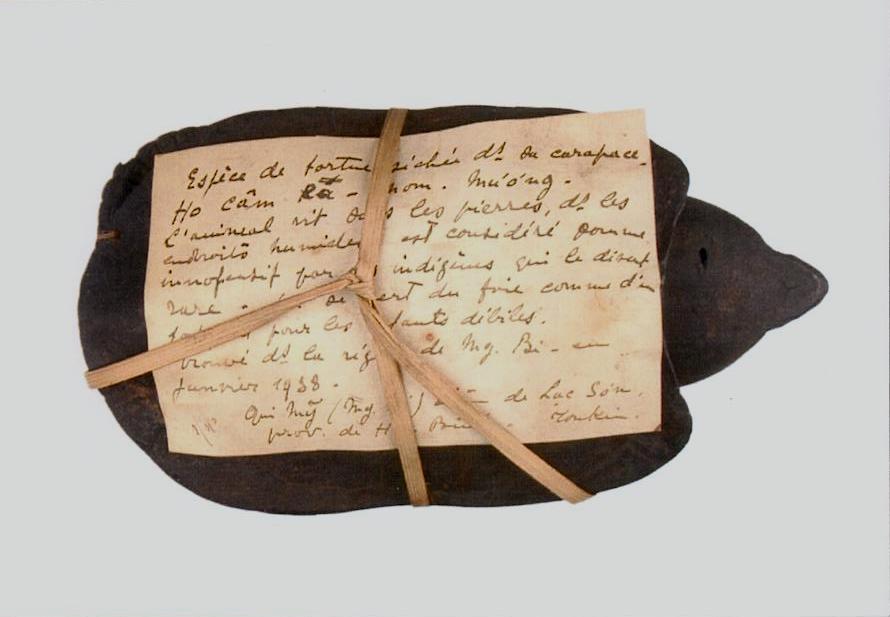 Espèce de tortue séchée ds sa carapace.
Ho Câm - nom. Mường -
L'animal vit dans les pierres, ds les
endroits humides est considéré comme
innofensif par indigènes qui le disent
rare - se sert du foie comme d'un
pour les enfants débiles.
trouvé ds la rég de Mg. Bi - en
Janvier 1938 -
Qui Mỹ (Mg. ) de Lac Sơn.
prov. de Tonkin.